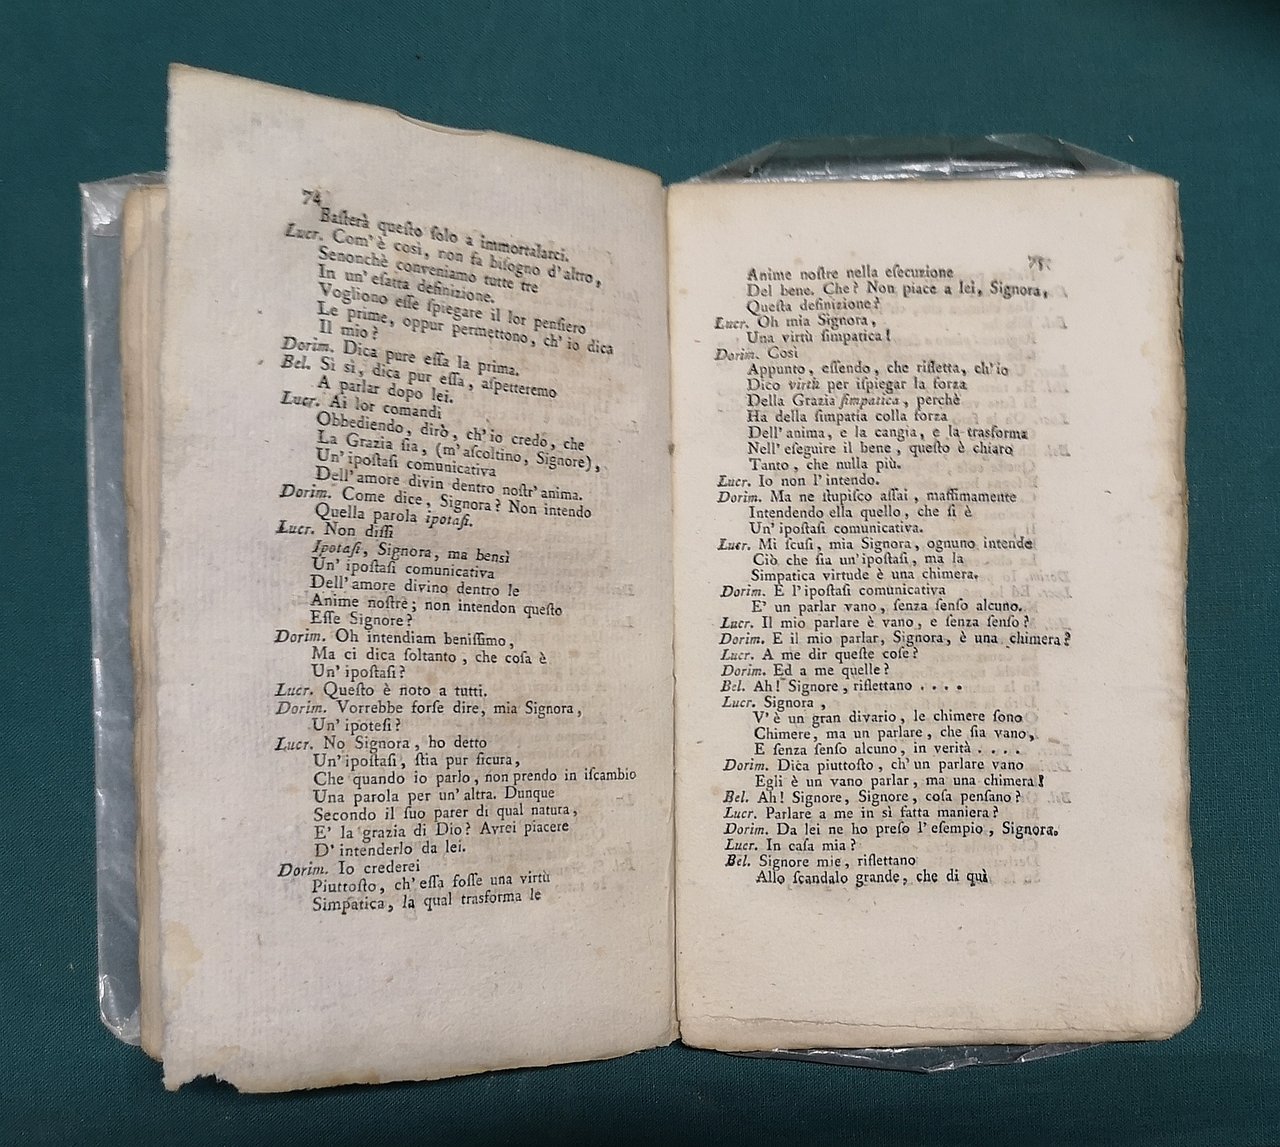 74
Baſterà queſto ſolo a immortalarci.
Lucr. Com'è così, non fa biſogno d'altro,
Senonchè conveniamo tutte tre
In un'eſatta definizione.
Vogliono eſſe ſpiegare il lor penſiero
Le prime, oppur permettono, ch'io dica
Il mio?
Dorim. Dica pure eſſa la prima.
Bel. Sì sì, dica pur eſſa, aſpetteremo
A parlar dopo lei.
Lucr. Ai lor comandi
Obbediendo, dirò, ch'io credo, che
La Grazia ſia, (m'aſcoltino, Signore),
Un'ipoſtaſi comunicativa
Dell'amore divin dentro noſtr'anima.
Dorim. Come dice, Signora? Non intendo
Quella parola ipotaſi.
Lucr. Non diſſi
Ipotaſi, Signora, ma bensì
Un'ipoſtaſi comunicativa
Dell'amore divino dentro le
Anime noſtre; non intendon queſto
Eſſe Signore?
Dorim. Oh intendiam beniſſimo,
Ma ci dica ſoltanto, che coſa è
Un'ipoſtaſi?
Lucr. Queſto è noto a tutti.
Dorim. Vorrebbe forſe dire, mia Signora,
Un'ipoteſi?
Lucr. No Signora, ho detto
Un'ipoſtaſi, ſtia pur ſicura,
Che quando io parlo, non prendo in iſcambio
Una parola per un'altra. Dunque
Secondo il ſuo parer di qual natura,
E' la grazia di Dio? Avrei piacere
D'intenderlo da lei.
Dorim. Io crederei
Piuttoſto, ch'eſſa foſſe una virtù
Simpatica, la qual trasforma le
75
Anime noſtre nella eſecuzione
Del bene. Che? Non piace a lei, Signora,
Queſta definizione?
Lucr. Oh mia Signora,
Una virtù ſimpatica!
Dorim. Così
Appunto, eſſendo, che rifletta, ch'io
Dico virtù per iſpiegar la forza
Della Grazia ſimpatica, perchè
Ha della ſimpatia colla forza
Dell'anima, e la cangia, e la trasforma
Nell'eſeguire il bene, queſto è chiaro
Tanto, che nulla più.
Lucr. Io non l'intendo.
Dorim. Ma ne ſtupiſco aſſai, maſſimamente
Intendendo ella quello, che ſi è
Un'ipoſtaſi comunicativa.
Lucr. Mi ſcuſi, mia Signora, ognuno intende
Ciò che ſia un'ipoſtaſi, ma la
Simpatica virtude è una chimera.
Dorim. E l'ipoſtaſi comunicativa
E' un parlar vano, ſenza ſenſo alcuno.
Lucr. Il mio parlare è vano, e ſenza ſenſo?
Dorim. E il mio parlar, Signora, è una chimera?
Lucr. A me dir queſte coſe?
Dorim. Ed a me quelle?
Bel. Ah! Signore, riflettano . . . .
Lucr. Signora,
V'è un gran divario, le chimere ſono
Chimere, ma un parlare, che ſia vano,
E ſenza ſenſo alcuno, in verità . . . .
Dorim. Dica piuttoſto, ch'un parlare vano
Egli è un vano parlar, ma una chimera!
Bel. Ah! Signore, Signore, coſa penſano?
Lucr. Parlare a me in sì fatta maniera?
Dorim. Da lei ne ho preſo l'eſempio, Signora.
Lucr. In caſa mia?
Bel. Signore mie, riflettano
Allo ſcandalo grande, che di quì